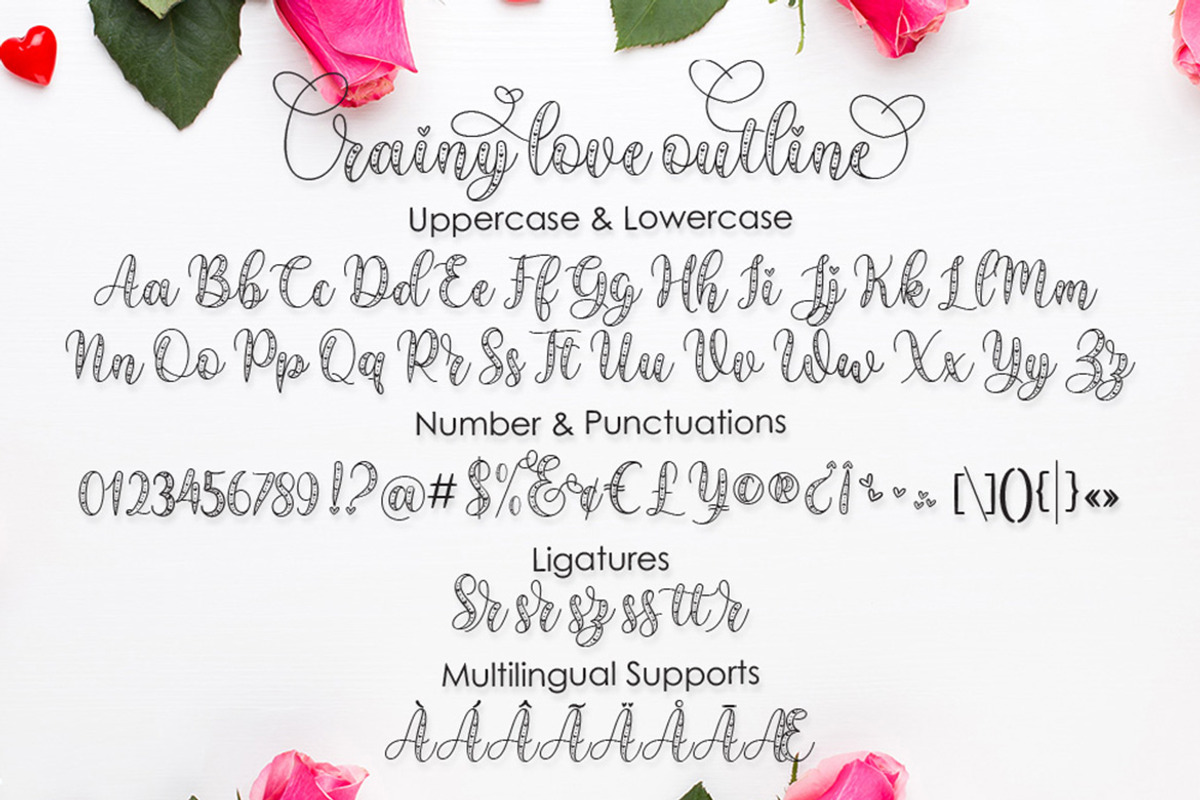 rainy love outline
Uppercase & Lowercase
Aa Bb Cc Dd Ee Ff Gg Hh Ii Jj Kk Ll Mm
Nn Oo Pp Qq Rr Ss Tt Uu Vv Ww Xx Yy Zz
Number & Punctuations
0123456789!?@#$%&¢€£¥©®¿¡ [\](){|}«»
Ligatures
Sr sr sz ss tt r
Multilingual Supports
ÀÁÂÃÄÅĀÆ